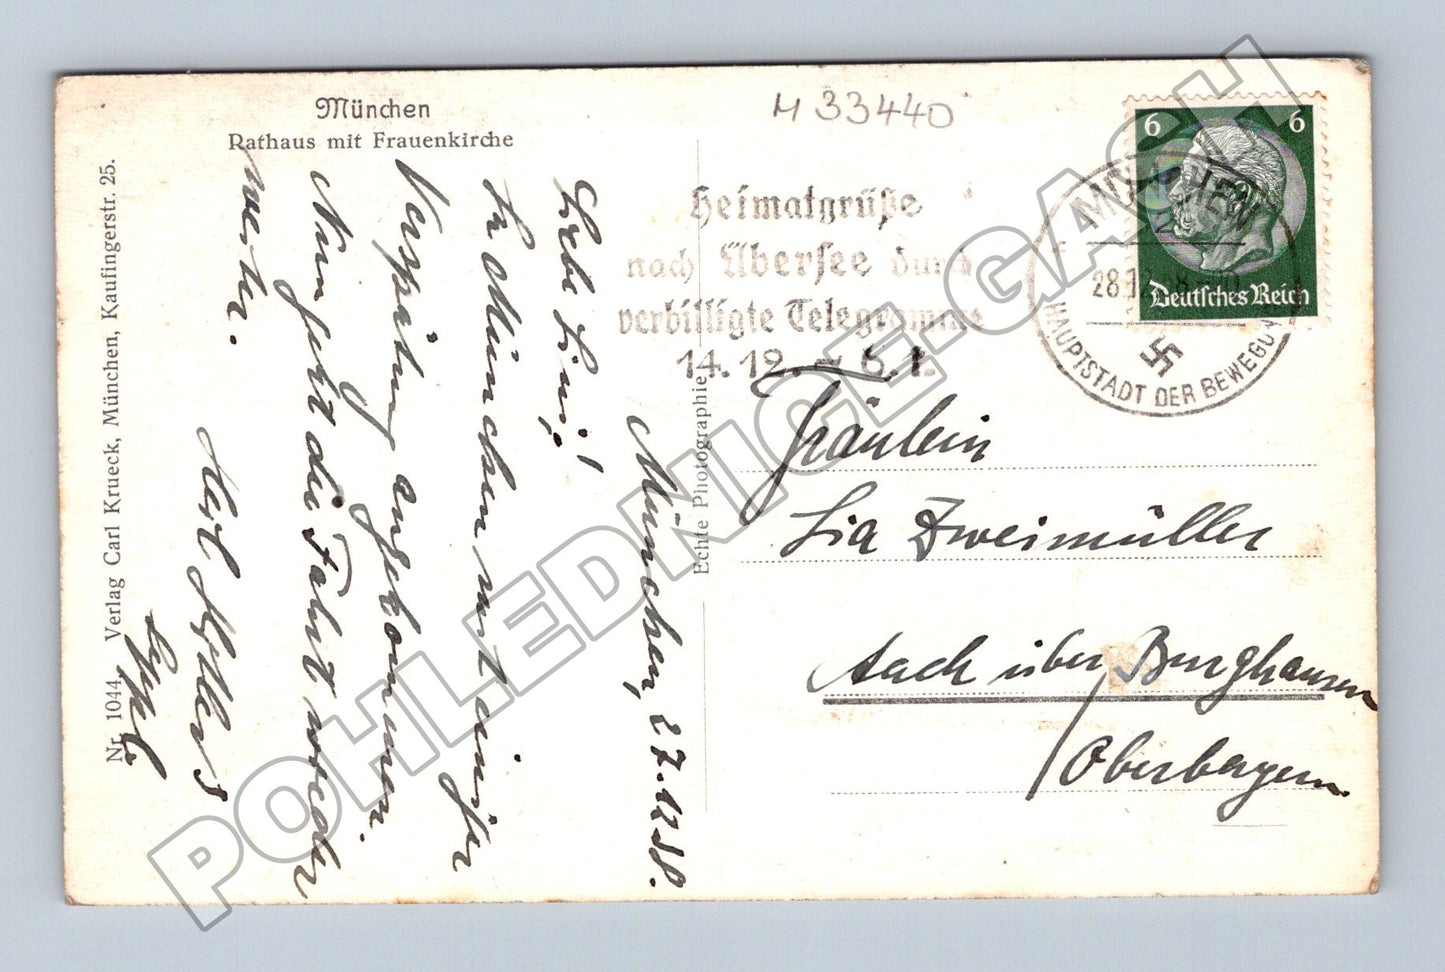 München
Rathaus mit Frauenkirche
Nr. 1044 Verlag Carl Krueck, München, Kaufingerstr. 25.
Echte Photographie
M 33440
Heimatgrüße
nach Übersee durch
verbilligte Telegramme
14.12. – 6.1.
MÜNCHEN
28.12.
HAUPTSTADT DER BEWEGUNG
6 6
Deutsches Reich
München, 27.12.38.
Liebe
In München mit einiger
Verspätung angekommen.
Nun geht die Fahrt wieder
weiter.
Fräulein
Lia Zweimüller
Aach über Burghausen
/Oberbayern
POHLEDNICE.GASH